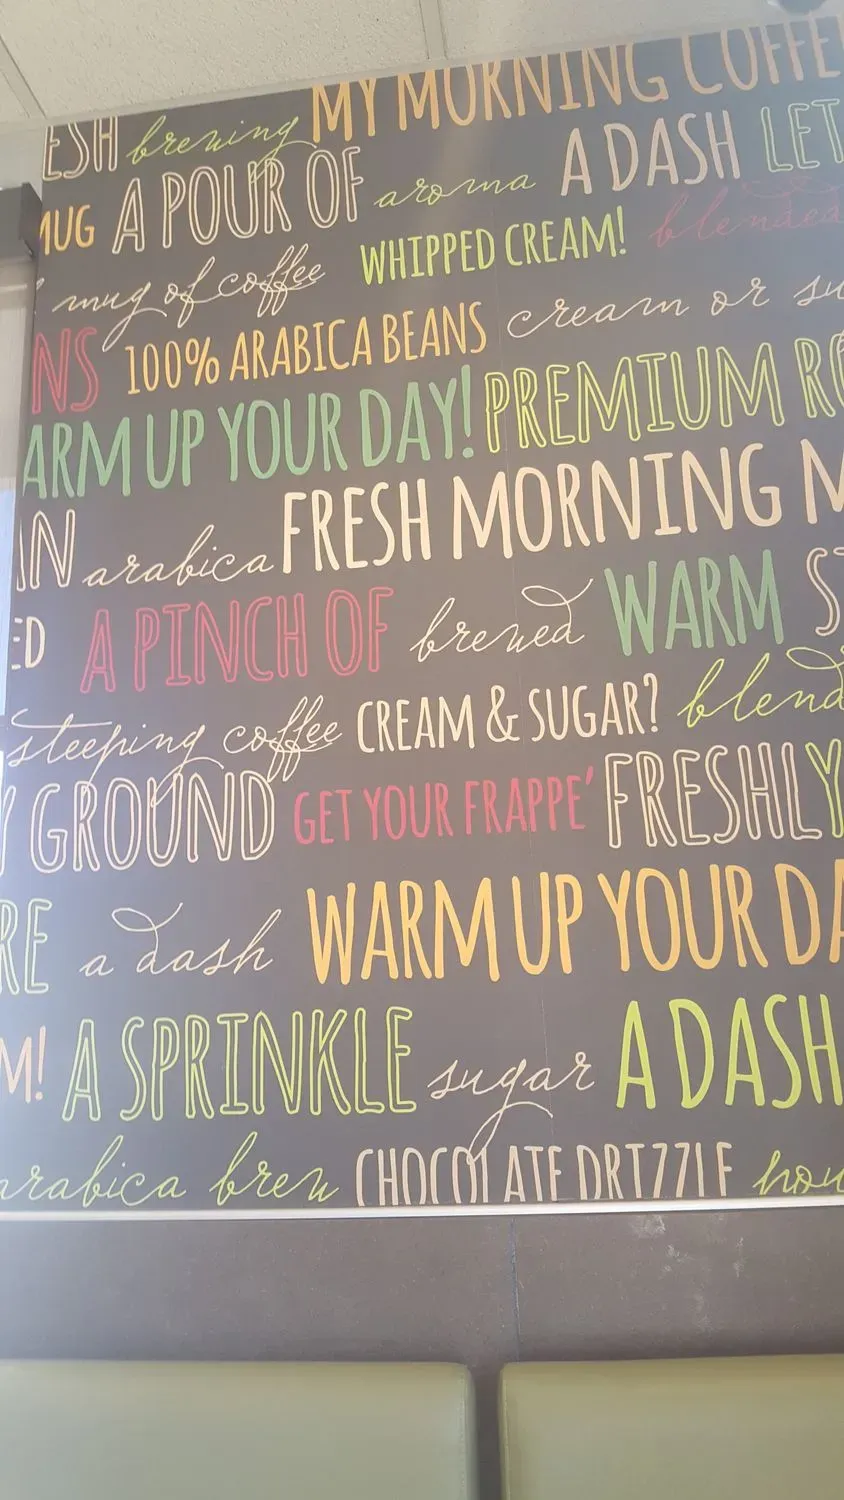 ESH brewing MY MORNING COFFE
MUG A POUR OF aroma A DASH LET
mug of coffee WHIPPED CREAM! blended
NS 100% ARABICA BEANS cream or su
ARM UP YOUR DAY! PREMIUM RO
IN arabica FRESH MORNING M
ED A PINCH OF brewed WARM ST
steeping coffee CREAM & SUGAR? blend
Y GROUND GET YOUR FRAPPE' FRESHLY
RE a dash WARM UP YOUR DA
M! A SPRINKLE sugar A DASH
arabica brew CHOCOLATE DRIZZLE hou